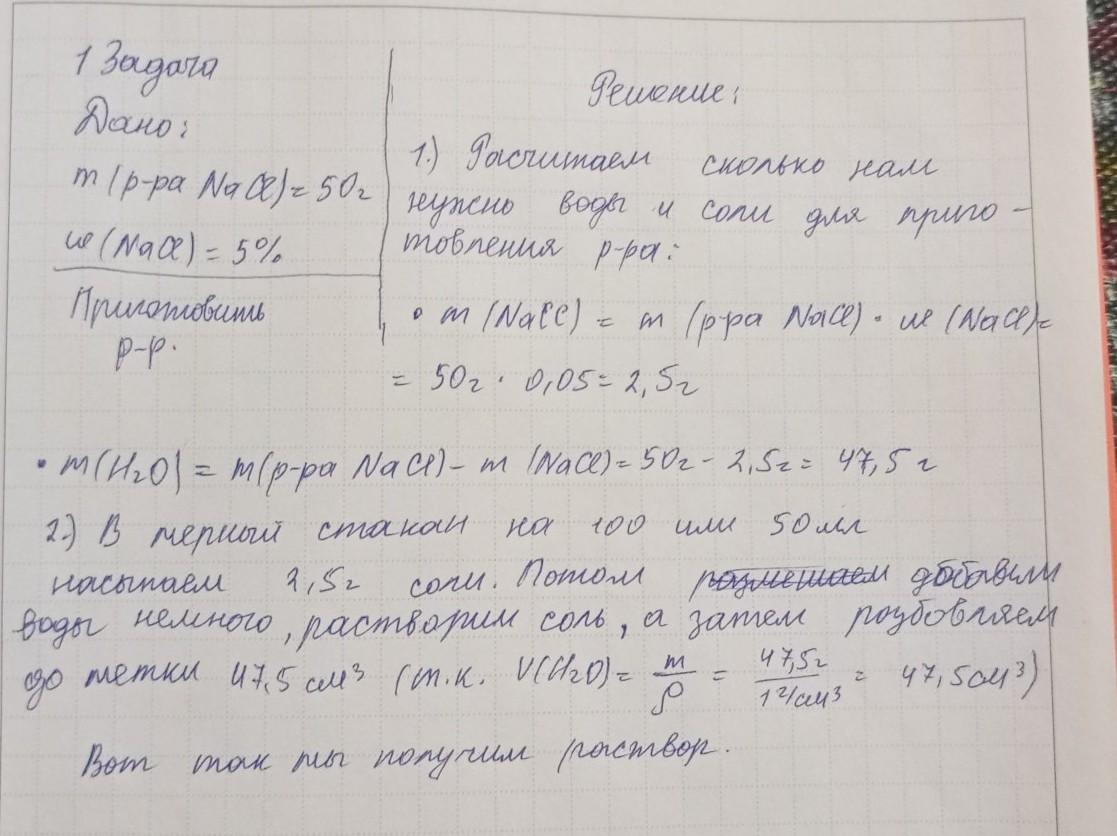 1 Задача
Дано:
m (р-ра NaCl) = 50г
ω (NaCl) = 5%
Приготовить
р-р.
Решение:
1.) Расчитаем сколько нам
нужно воды и соли для приго-
товления р-ра:
• m (NaCl) = m (р-ра NaCl) · ω (NaCl) =
= 50г · 0,05 = 2,5г
• m(H₂O) = m(р-ра NaCl) - m (NaCl) = 50г - 2,5г = 47,5 г
2.) В мерный стакан на 100 или 50мл
насыпаем 2,5г соли. Потом размешаем добавим
воды немного, растворим соль, а затем розбовляем
до метки 47,5 см³ (т.к. V(H₂O) = m/ρ = 47,5г/1г/см³ = 47,5см³)
Вот так мы получим раствор.